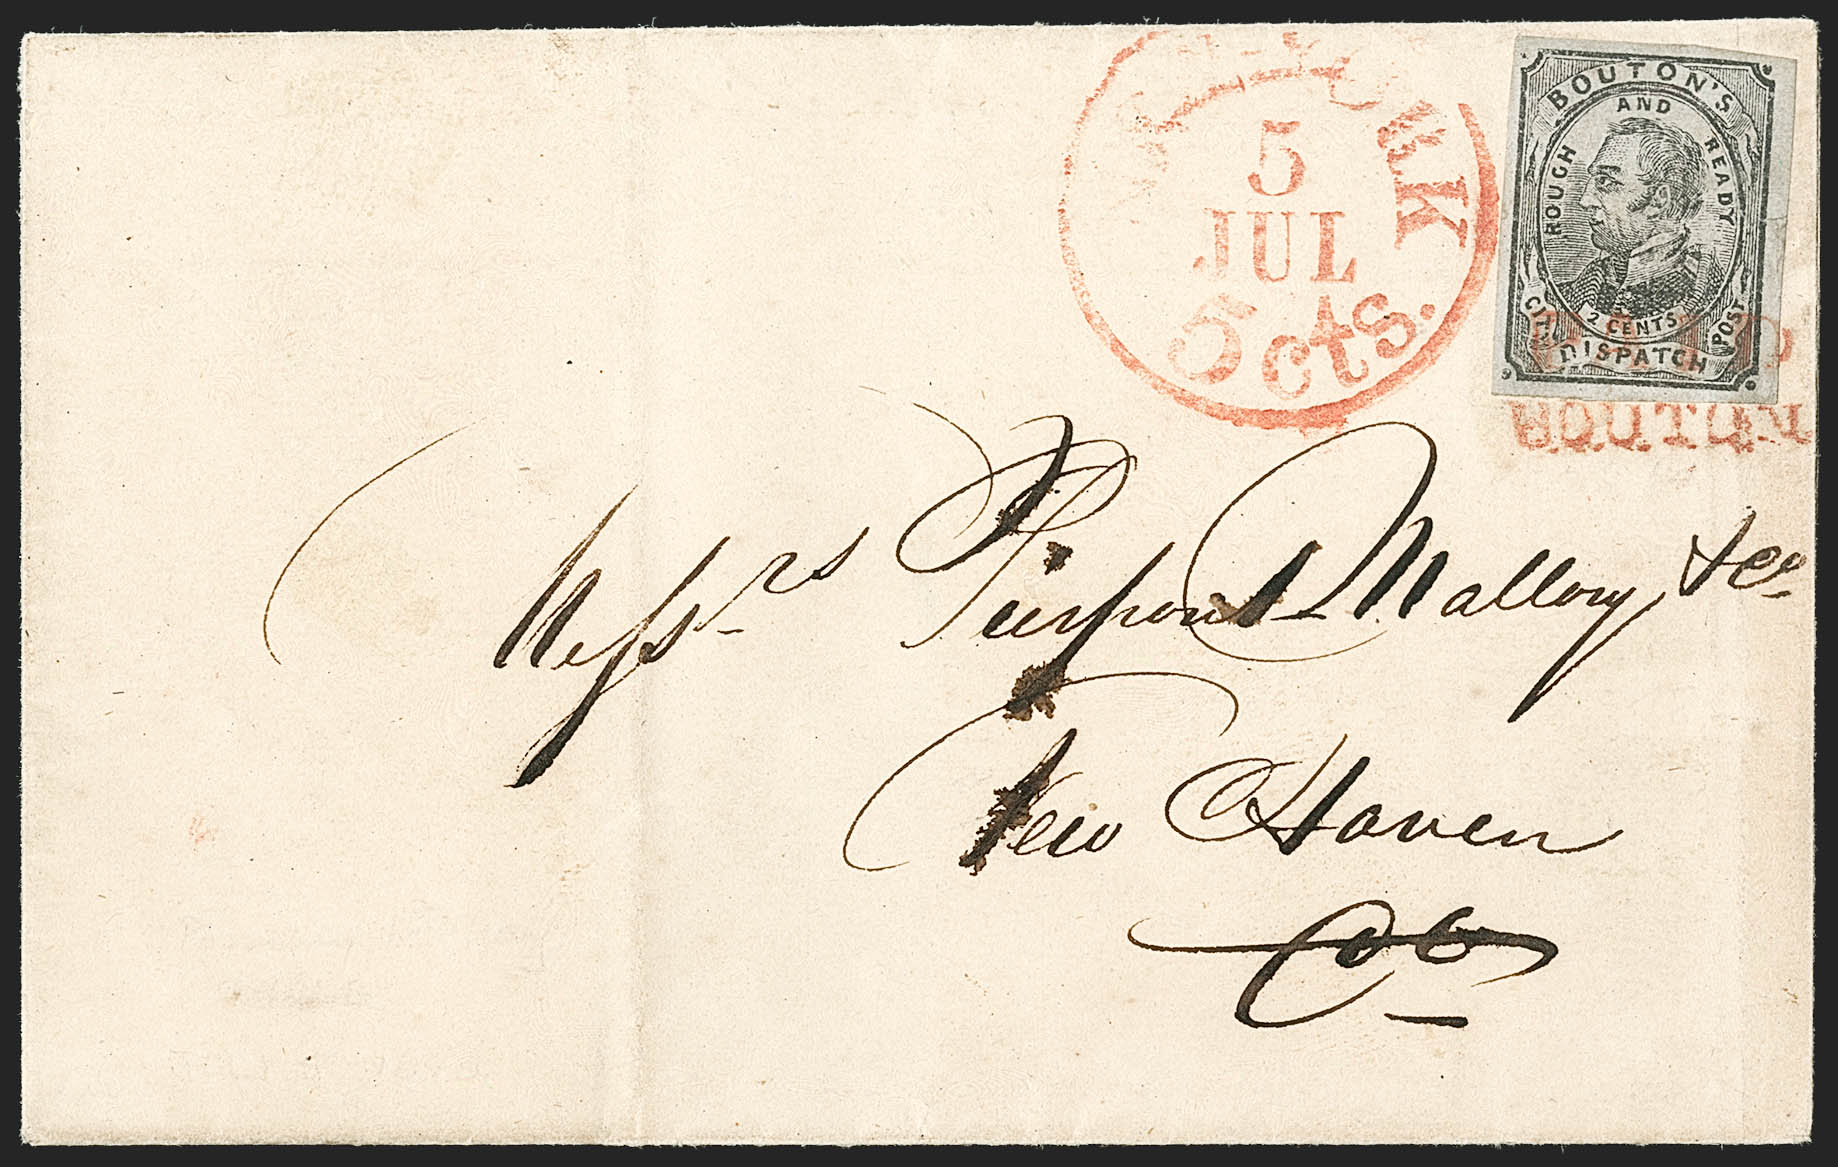 NEW-YORK
5
JUL
5cts.
BOUTON'S
ROUGH AND READY
2 CENTS
CITY DISPATCH POST
PAID
BOUTON
Messrs Pierpont Mallory & Co
New Haven
Ct